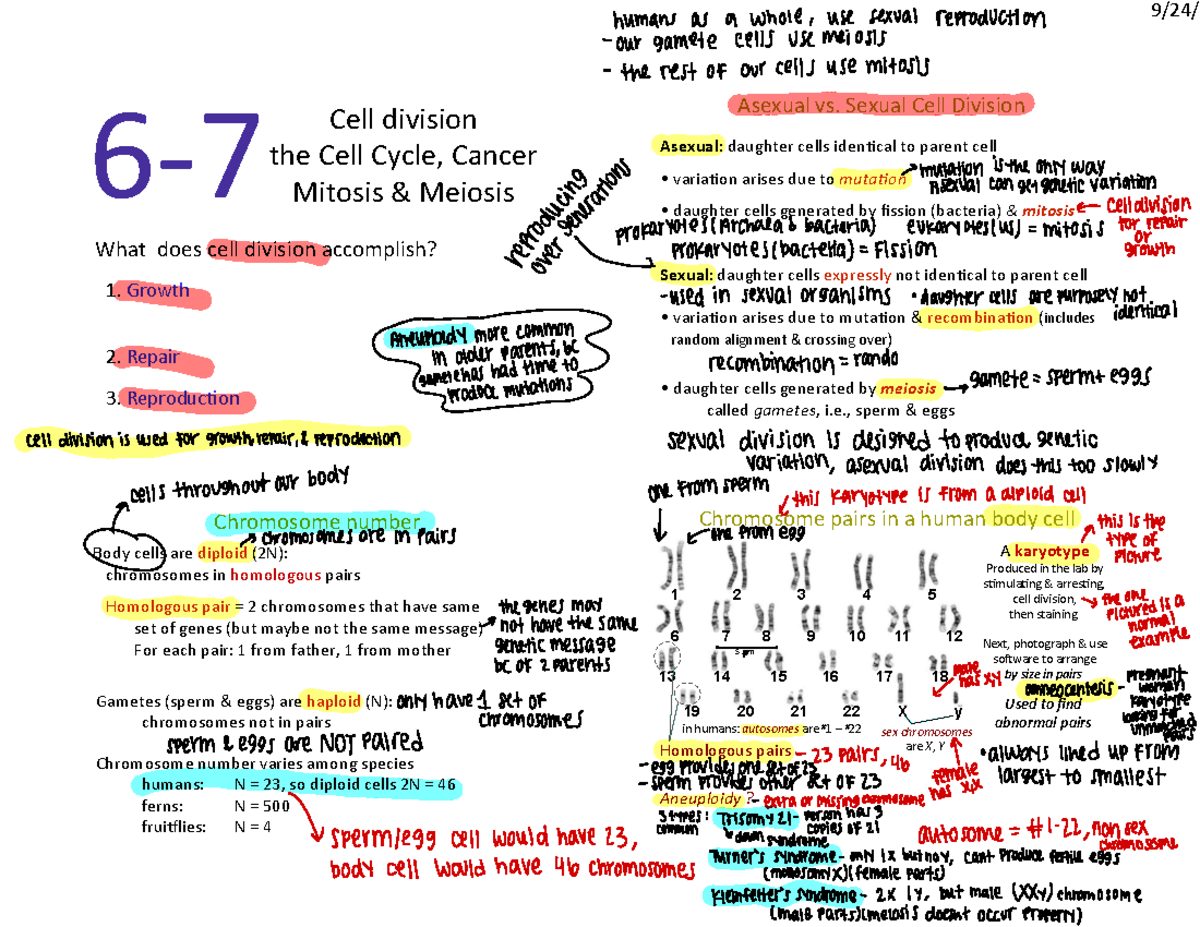 humans as a whole, use sexual reproduction
- our gamete cells use meiosis
- the rest of our cells use mitosis
9/24/
6-7
Cell division
the Cell Cycle, Cancer
Mitosis & Meiosis
What does cell division accomplish?
1. Growth
2. Repair
3. Reproduction
cell division is used for growth, repair, & reproduction
Aneuploidy more common
in older parents, bc
gamete has had time to
produce mutations
reproducing
over generations
Asexual vs. Sexual Cell Division
Asexual: daughter cells identical to parent cell
• variation arises due to mutation
mutation is the only way
asexual can get genetic variation
• daughter cells generated by fission (bacteria) & mitosis
cell division
for repair
or
growth
prokaryotes (Archaea & bacteria) eukaryotes (us) = mitosis
prokaryotes (bacteria) = Fission
Sexual: daughter cells expressly not identical to parent cell
- used in sexual organisms • daughter cells are purposely not
identical
• variation arises due to mutation & recombination (includes
random alignment & crossing over)
recombination = rando
• daughter cells generated by meiosis
gamete = sperm + eggs
called gametes, i.e., sperm & eggs
sexual division is designed to produce genetic
variation, asexual division does this too slowly
cells throughout our body
Chromosome number
chromosomes are in pairs
Body cells are diploid (2N):
chromosomes in homologous pairs
Homologous pair = 2 chromosomes that have same
set of genes (but maybe not the same message)
For each pair: 1 from father, 1 from mother
the genes may
not have the same
genetic message
bc of 2 parents
Gametes (sperm & eggs) are haploid (N): only have 1 set of
chromosomes
chromosomes not in pairs
sperm & eggs are NOT paired
Chromosome number varies among species
humans: N = 23, so diploid cells 2N = 46
ferns: N = 500
fruitflies: N = 4
sperm/egg cell would have 23,
body cell would have 46 chromosomes
one from sperm
this karyotype is from a diploid cell
Chromosome pairs in a human body cell
one from egg
this is the
type of
picture
A karyotype
Produced in the lab by
stimulating & arresting
cell division,
then staining
the one
pictured is a
normal
example
Next, photograph & use
software to arrange
by size in pairs
amneocentesis -
pregnant
woman's
karyotype
looking for
unmatched
pairs
Used to find
abnormal pairs
1 2 3 4 5
6 7 8 9 10 11 12
13 14 15 16 17 18
19 20 21 22 X y
male
has X,Y
in humans: autosomes are #1 – #22
sex chromosomes
are X, Y
female
has X,X
• always lined up from
largest to smallest
Homologous pairs - 23 pairs, 46
- egg provides one set of 23
- sperm provides other set of 23
Aneuploidy? - extra or missing chromosome
3 types: Trisomy 21 - person has 3
common
copies of 21
down syndrome
autosome = #1-22, non sex
chromosome
Turner's syndrome - only 1x but no y, cant produce fertile eggs
(monosomy X) (female parts)
Kleinfelter's syndrome - 2X 1Y, but male (XXY) chromosome
(male parts) (meiosis doesnt occur properly)